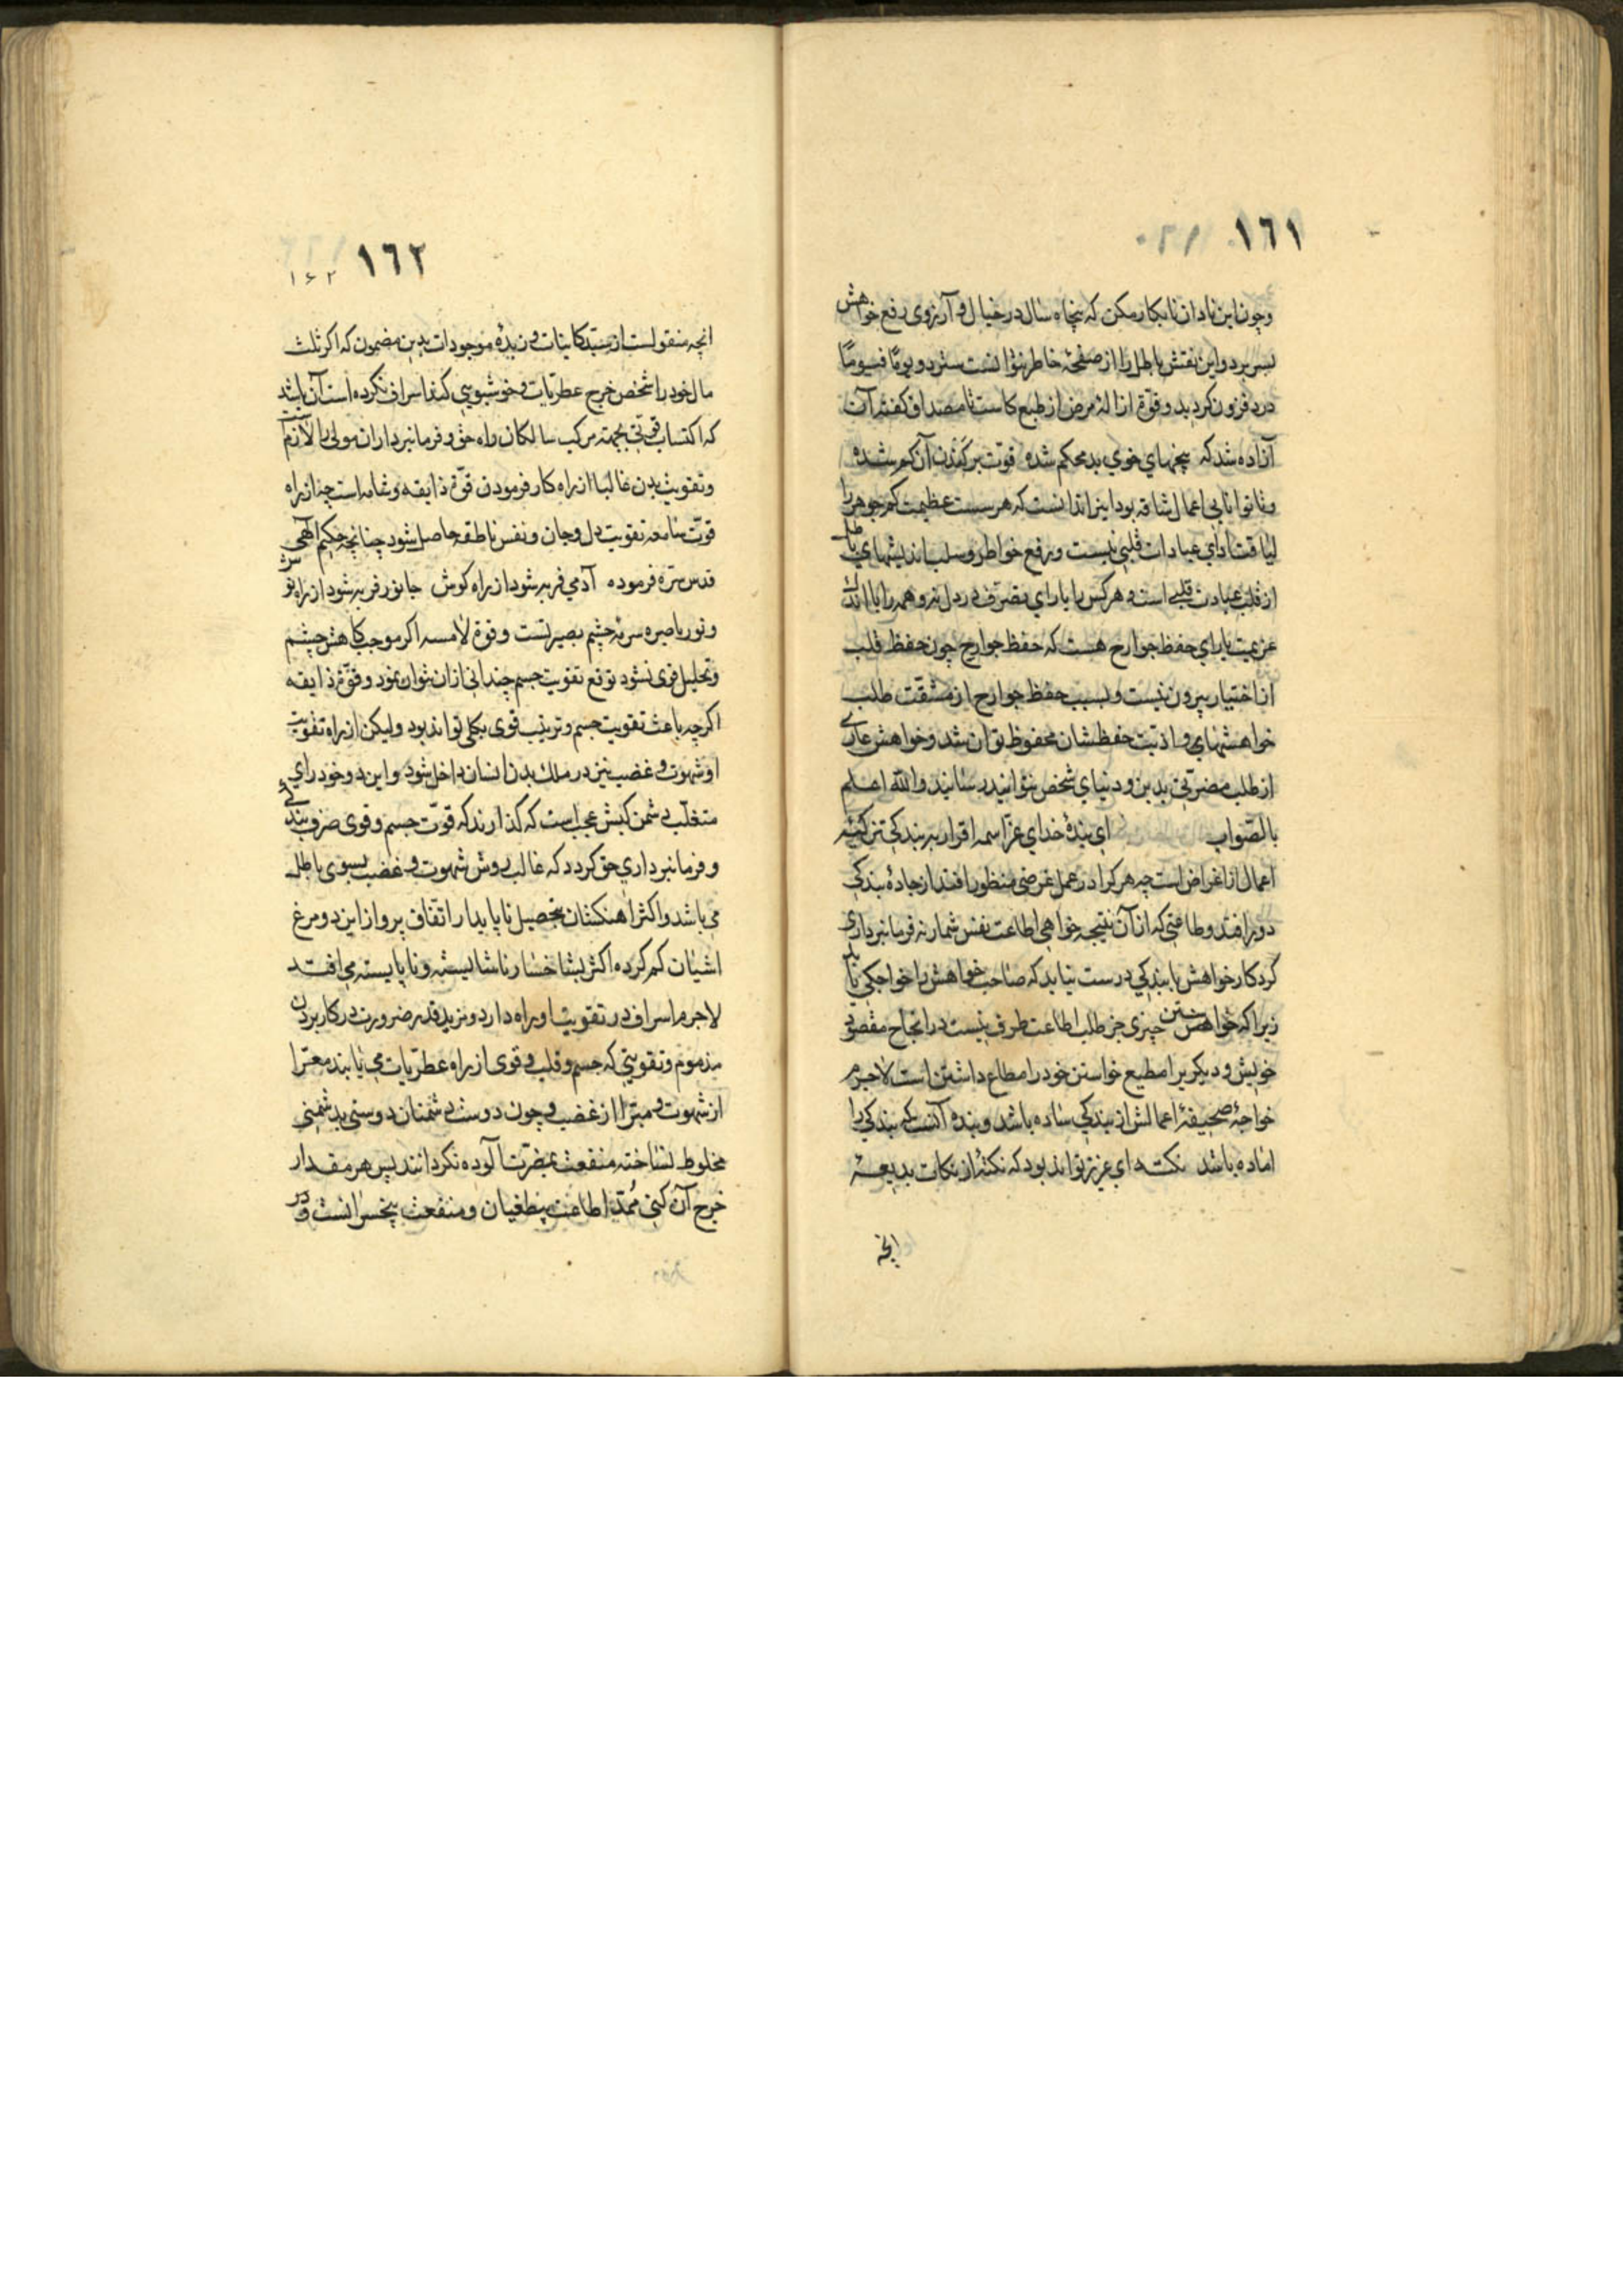 ١٦١
وچون این نادان نابکار مکن که پنجاه سال در خیال و آرزوی رفع خواهش
بسر برد و این نقش باطل را از صفحهٔ خاطر نتوانست سترد و یومًا فیومًا
درد فزون کردید و قوة ازالهٔ مرض از طبع کاست تا مصداق کفتهٔ آن
آزاده شد که بیخهای خوی بد محکم شده قوت برکندن آن کم شده
و ناتوانایی اعمال شاقه بود این را ندانست که هر سست عظیمت کم جوهر را
لیاقت ادای عبادات قلبی نیست و رفع خواطر و سلب اندیشهای باطل
از قلب عبادت قلبی است و هر کس را یارای تصرف در دل نه و همه را با اندک
عزیمت یارای حفظ جوارح هست که حفظ جوارح چون حفظ قلب
از اختیار بیرون نیست و بسبب حفظ جوارح از مشقت طلب
خواهشهای و اذیت حفظشان محفوظ توان شد و خواهش عاری
از طلب مضرتی بدین و دنیای شخص نتوانید رسانید والله اعلم
بالصواب ای بندهٔ خدای عزاسمه اقرار به بندکی تزکیه
اعمال از اغراض است چه هر کرا در عمل غرضی منظور افتد از جادهٔ بندکی
دور افتد و طاعتی که از آن نتیجه خواهی اطاعت نفس شمار نه فرمانبرداری
کردکار خواهش با بندکی درست نیاید که صاحب خواهش را خواجکی باید
زیرا که خواهش چیزی جز طلب اطاعت طرف نیست در انجاح مقصود
خویش و دیکریرا مطیع خواستن خود را مطاع داشتن است لاجرم
خواجهٔ صحیفهٔ اعمالش از بندکی ساده باشد و بنده آنست که بندکی را
اماده باشد نکته ای عزیز تواند بود که نکتهٔ از نکات بدیعهٔ
انچه
١٦٢
۱۶۲
انچه منقولست از سید کاینات و زبدهٔ موجودات بدین مضمون که اکر ثلث
مال خود را شخص خرج عطریات و خوشبویی کند اسراف نکرده است آن باشد
که اکتساب قوتی بجهته مرکب سالکان راه حق و فرمانبرداران مولی را لازم است
و تقویت بدن غالبا از راه کار فرمودن قوّة ذایقه و شامه است چه از راه
قوّت سامعه تقویت دل و جان و نفس ناطقه حاصل شود چنانچه حکیم الهی
قدس سره فرموده آدمی فربه شود از راه کوش جانور فربه شود از راه نوش
و نور باصره سرمهٔ چشم بصیرتست و قوة لامسه اکر موجب کاهش چشم
و تحلیل قوی نشود توقع تقویت جسم چندانی ازان نتوان نمود و قوّة ذایقه
اکرچه باعث تقویت جسم و تربیت قوی بکلی تواند بود ولیکن از راه تقویت
او شهوت و غضب نیز در ملک بدن انسان داخل شود و این دو خود رای
متغلب دشمن کیش عجب است که کذارند که قوّت جسم و قوی صرف بندکی
و فرمانبرداری حق کردد که غالب روش شهوت و غضب بسوی باطل
می باشد و اکثر آهنکشان بتحصیل ناپایدار اتفاق پرواز این دو مرغ
اشیان کم کرده اکثر بشاخسار ناشایسته و نابایسته می افتد
لاجرم اسراف در تقویت او راه دارد و مزید قدر ضرورت در کار بردن
مذموم و تقویتی که جسم و قلب و قوی از راه عطریات می یابند معرّا
از شهوت و مبرّا از غضب و چون دوست دشمنان دوستی بدشمنی
مخلوط نساخته منفعت بمضرت آلوده نکردانند پس هر مقدار
خرج آن کنی ممدّ اطاعت بیطغیان و منفعت بیخسرانست و در